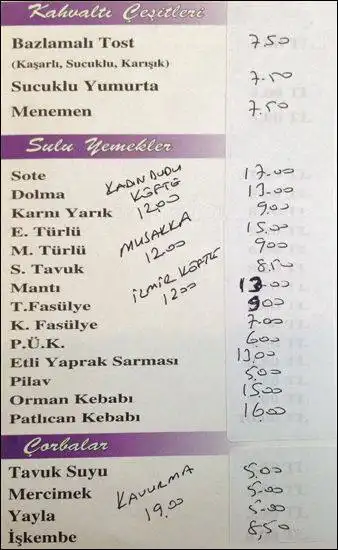 Kahvaltı Çeşitleri
Bazlamalı Tost 7.50
(Kaşarlı, Sucuklu, Karışık)
Sucuklu Yumurta 7.50
Menemen 7.50
Sulu Yemekler
Sote 17.00
Dolma 13.00
Karnı Yarık 900
E. Türlü 15.00
M. Türlü 900
S. Tavuk 8.50
Mantı 13.00
T.Fasülye 900
K. Fasülye 7.00
P.Ü.K. 600
Etli Yaprak Sarması 13.00
Pilav 500
Orman Kebabı 15.00
Patlıcan Kebabı 16.00
KADIN BUDU
KÖFTE
12.00
MUSAKKA
12.00
İZMİR KÖFTE
1200
Çorbalar
Tavuk Suyu 5.00
Mercimek 5.00
Yayla 5.00
İşkembe 8,50
KAVURMA
19.00